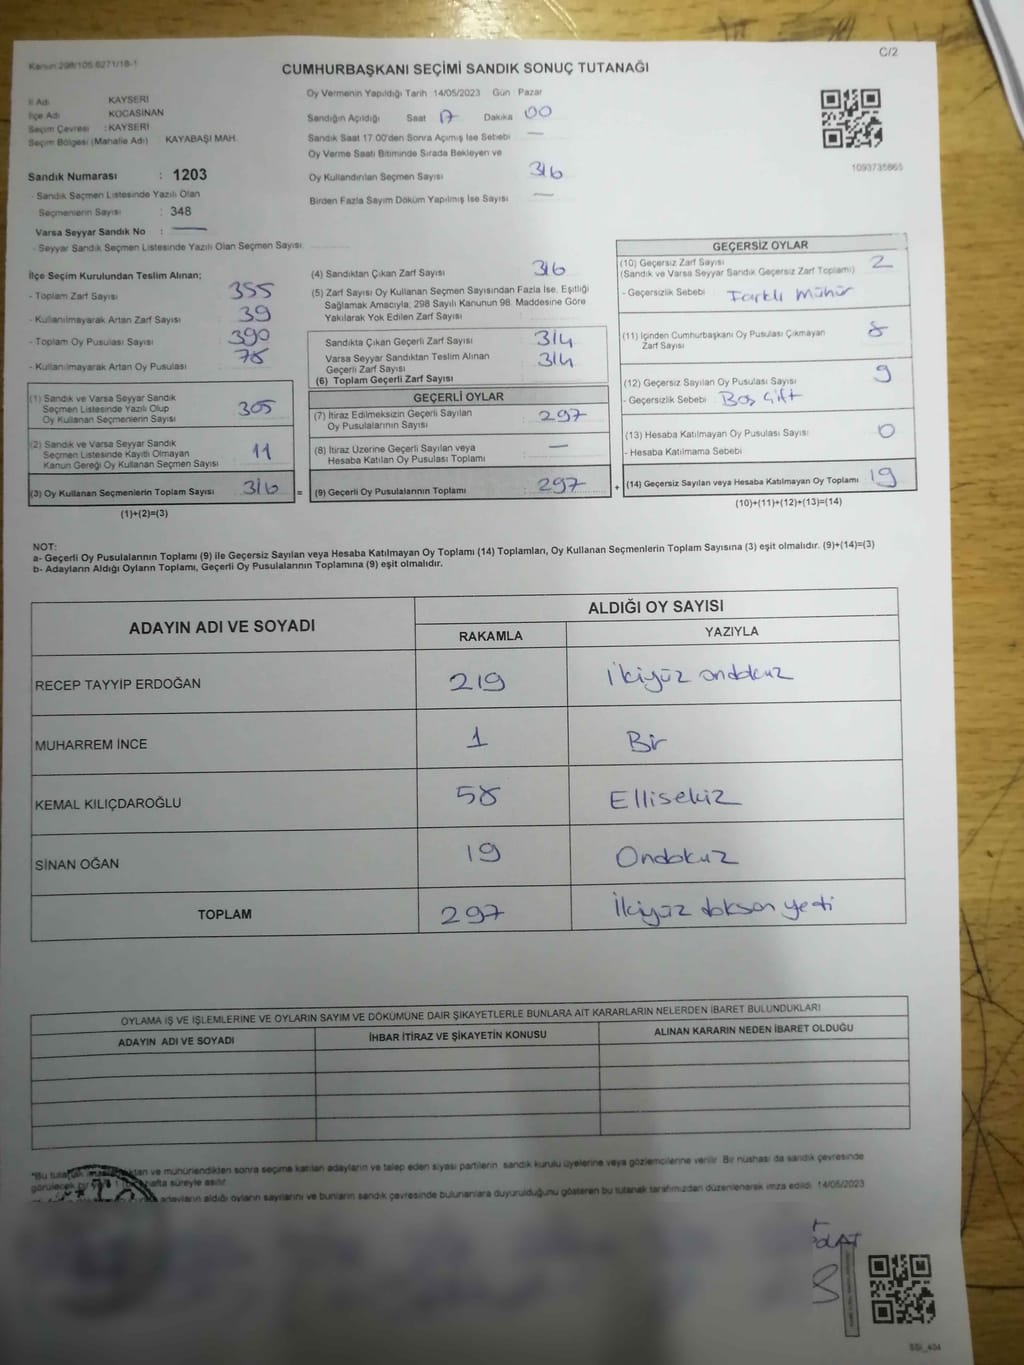 C/2
Kanun:298/105 6271/18-1
CUMHURBAŞKANI SEÇİMİ SANDIK SONUÇ TUTANAĞI
İl Adı KAYSERİ
İlçe Adı KOCASİNAN
Seçim Çevresi : KAYSERİ
Seçim Bölgesi (Mahalle Adı) KAYABAŞI MAH.
Sandık Numarası : 1203
- Sandık Seçmen Listesinde Yazılı Olan
Seçmenlerin Sayısı : 348
Varsa Seyyar Sandık No : —
- Seyyar Sandık Seçmen Listesinde Yazılı Olan Seçmen Sayısı
Oy Vermenin Yapıldığı Tarih :14/05/2023 Gün : Pazar
Sandığın Açıldığı Saat 17 Dakika 00
Sandık Saat 17.00'den Sonra Açılmış İse Sebebi —
Oy Verme Saati Bitiminde Sırada Bekleyen ve
Oy Kullandırılan Seçmen Sayısı 316
Birden Fazla Sayım Döküm Yapılmış İse Sayısı —
1093735865
İlçe Seçim Kurulundan Teslim Alınan;
- Toplam Zarf Sayısı 355
- Kullanılmayarak Artan Zarf Sayısı 39
- Toplam Oy Pusulası Sayısı 390
- Kullanılmayarak Artan Oy Pusulası 78
(1) Sandık ve Varsa Seyyar Sandık
Seçmen Listesinde Yazılı Olup
Oy Kullanan Seçmenlerin Sayısı 305
(2) Sandık ve Varsa Seyyar Sandık
Seçmen Listesinde Kayıtlı Olmayan
Kanun Gereği Oy Kullanan Seçmen Sayısı 11
(3) Oy Kullanan Seçmenlerin Toplam Sayısı 316 =
(1)+(2)=(3)
(4) Sandıktan Çıkan Zarf Sayısı 316
(5) Zarf Sayısı Oy Kullanan Seçmen Sayısından Fazla İse, Eşitliği
Sağlamak Amacıyla, 298 Sayılı Kanunun 98. Maddesine Göre
Yakılarak Yok Edilen Zarf Sayısı
Sandıkta Çıkan Geçerli Zarf Sayısı 314
Varsa Seyyar Sandıktan Teslim Alınan 314
Geçerli Zarf Sayısı
(6) Toplam Geçerli Zarf Sayısı
GEÇERLİ OYLAR
(7) İtiraz Edilmeksizin Geçerli Sayılan
Oy Pusulalarının Sayısı 297
(8) İtiraz Üzerine Geçerli Sayılan veya
Hesaba Katılan Oy Pusulası Toplamı —
(9) Geçerli Oy Pusulalarının Toplamı 297 +
GEÇERSİZ OYLAR
(10) Geçersiz Zarf Sayısı 2
(Sandık ve Varsa Seyyar Sandık Geçersiz Zarf Toplamı)
- Geçersizlik Sebebi Farklı Mühür
(11) İçinden Cumhurbaşkanı Oy Pusulası Çıkmayan
Zarf Sayısı 8
(12) Geçersiz Sayılan Oy Pusulası Sayısı 9
- Geçersizlik Sebebi Boş Çift
(13) Hesaba Katılmayan Oy Pusulası Sayısı 0
- Hesaba Katılmama Sebebi
(14) Geçersiz Sayılan veya Hesaba Katılmayan Oy Toplamı 19
(10)+(11)+(12)+(13)=(14)
NOT:
a- Geçerli Oy Pusulalarının Toplamı (9) ile Geçersiz Sayılan veya Hesaba Katılmayan Oy Toplamı (14) Toplamları, Oy Kullanan Seçmenlerin Toplam Sayısına (3) eşit olmalıdır. (9)+(14)=(3)
b- Adayların Aldığı Oyların Toplamı, Geçerli Oy Pusulalarının Toplamına (9) eşit olmalıdır.
ADAYIN ADI VE SOYADI ALDIĞI OY SAYISI
RAKAMLA YAZIYLA
RECEP TAYYİP ERDOĞAN 219 İkiyüz ondokuz
MUHARREM İNCE 1 Bir
KEMAL KILIÇDAROĞLU 58 Ellisekiz
SİNAN OĞAN 19 Ondokuz
TOPLAM 297 İkiyüz doksan yedi
OYLAMA İŞ VE İŞLEMLERİNE VE OYLARIN SAYIM VE DÖKÜMÜNE DAİR ŞİKAYETLERLE BUNLARA AİT KARARLARIN NELERDEN İBARET BULUNDUKLARI
ADAYIN ADI VE SOYADI İHBAR İTİRAZ VE ŞİKAYETİN KONUSU ALINAN KARARIN NEDEN İBARET OLDUĞU
*Bu tutanak ve mühürlendikten sonra seçime katılan adayların ve talep eden siyasi partilerin, sandık kurulu üyelerine veya gözlemcilerine verilir. Bir nüshası da sandık çevresinde
görülecek bir hafta süreyle asılır.
adayların aldığı oyların sayılarını ve bunların sandık çevresinde bulunanlara duyurulduğunu gösteren bu tutanak tarafımızdan düzenlenerek imza edildi. 14/05/2023